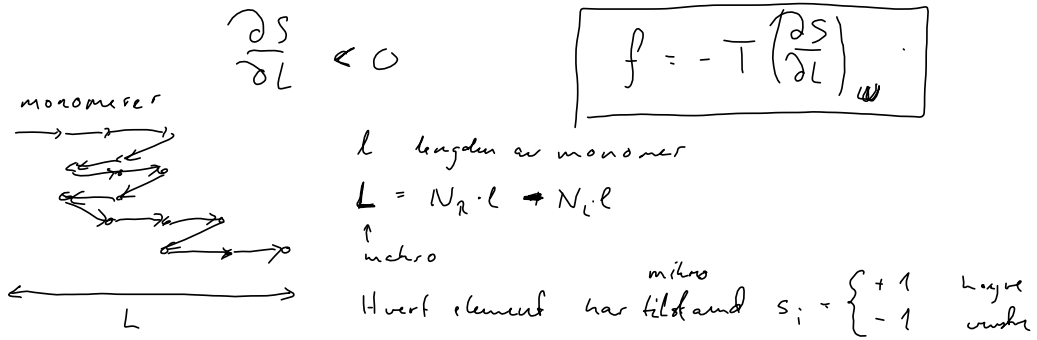 ∂S/∂L < 0
f = - T (∂S/∂L)
monomerer
l lengden av monomer
L = N_R · l - N_L · l
↑
makro
mikro
Hvert element har tilstand s_i = { +1 høyre
-1 venstre
L